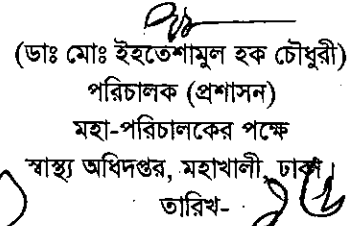 (ডাঃ মোঃ ইহতেশামুল হক চৌধুরী)
পরিচালক (প্রশাসন)
মহা-পরিচালকের পক্ষে
স্বাস্থ্য অধিদপ্তর, মহাখালী, ঢাকা।
তারিখ-